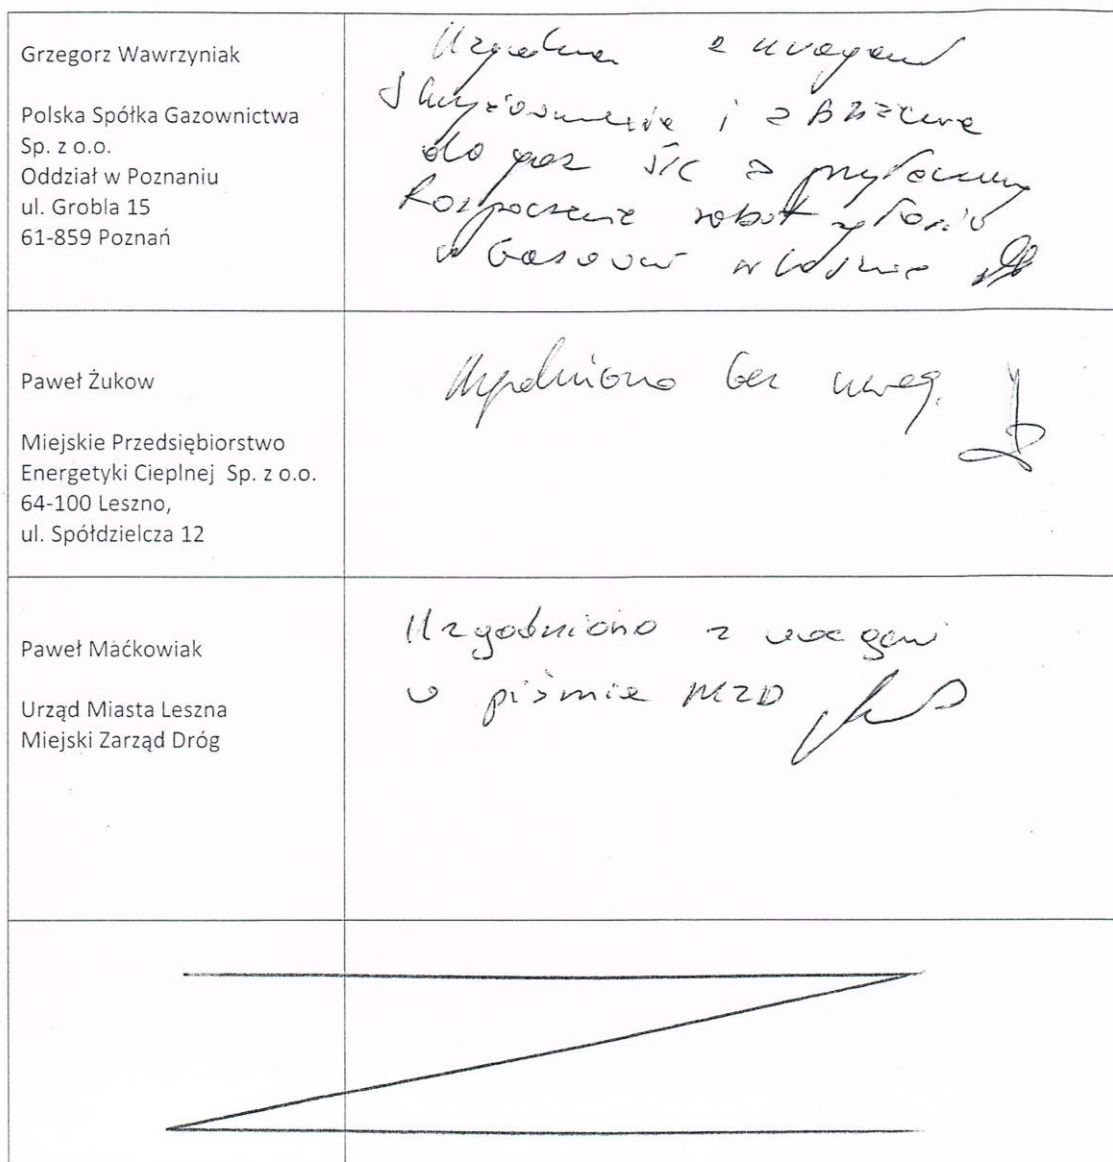 Grzegorz Wawrzyniak
Polska Spółka Gazownictwa
Sp. z o.o.
Oddział w Poznaniu
ul. Grobla 15
61-859 Poznań
z uwagami
i
do gaz ś/c z
Rozpoczęcie robót zgłosić
w
Paweł Żukow
Miejskie Przedsiębiorstwo
Energetyki Cieplnej Sp. z o.o.
64-100 Leszno,
ul. Spółdzielcza 12
Uzgodniono bez uwag.
Paweł Maćkowiak
Urząd Miasta Leszna
Miejski Zarząd Dróg
Uzgodniono z uwagami
w piśmie MZD